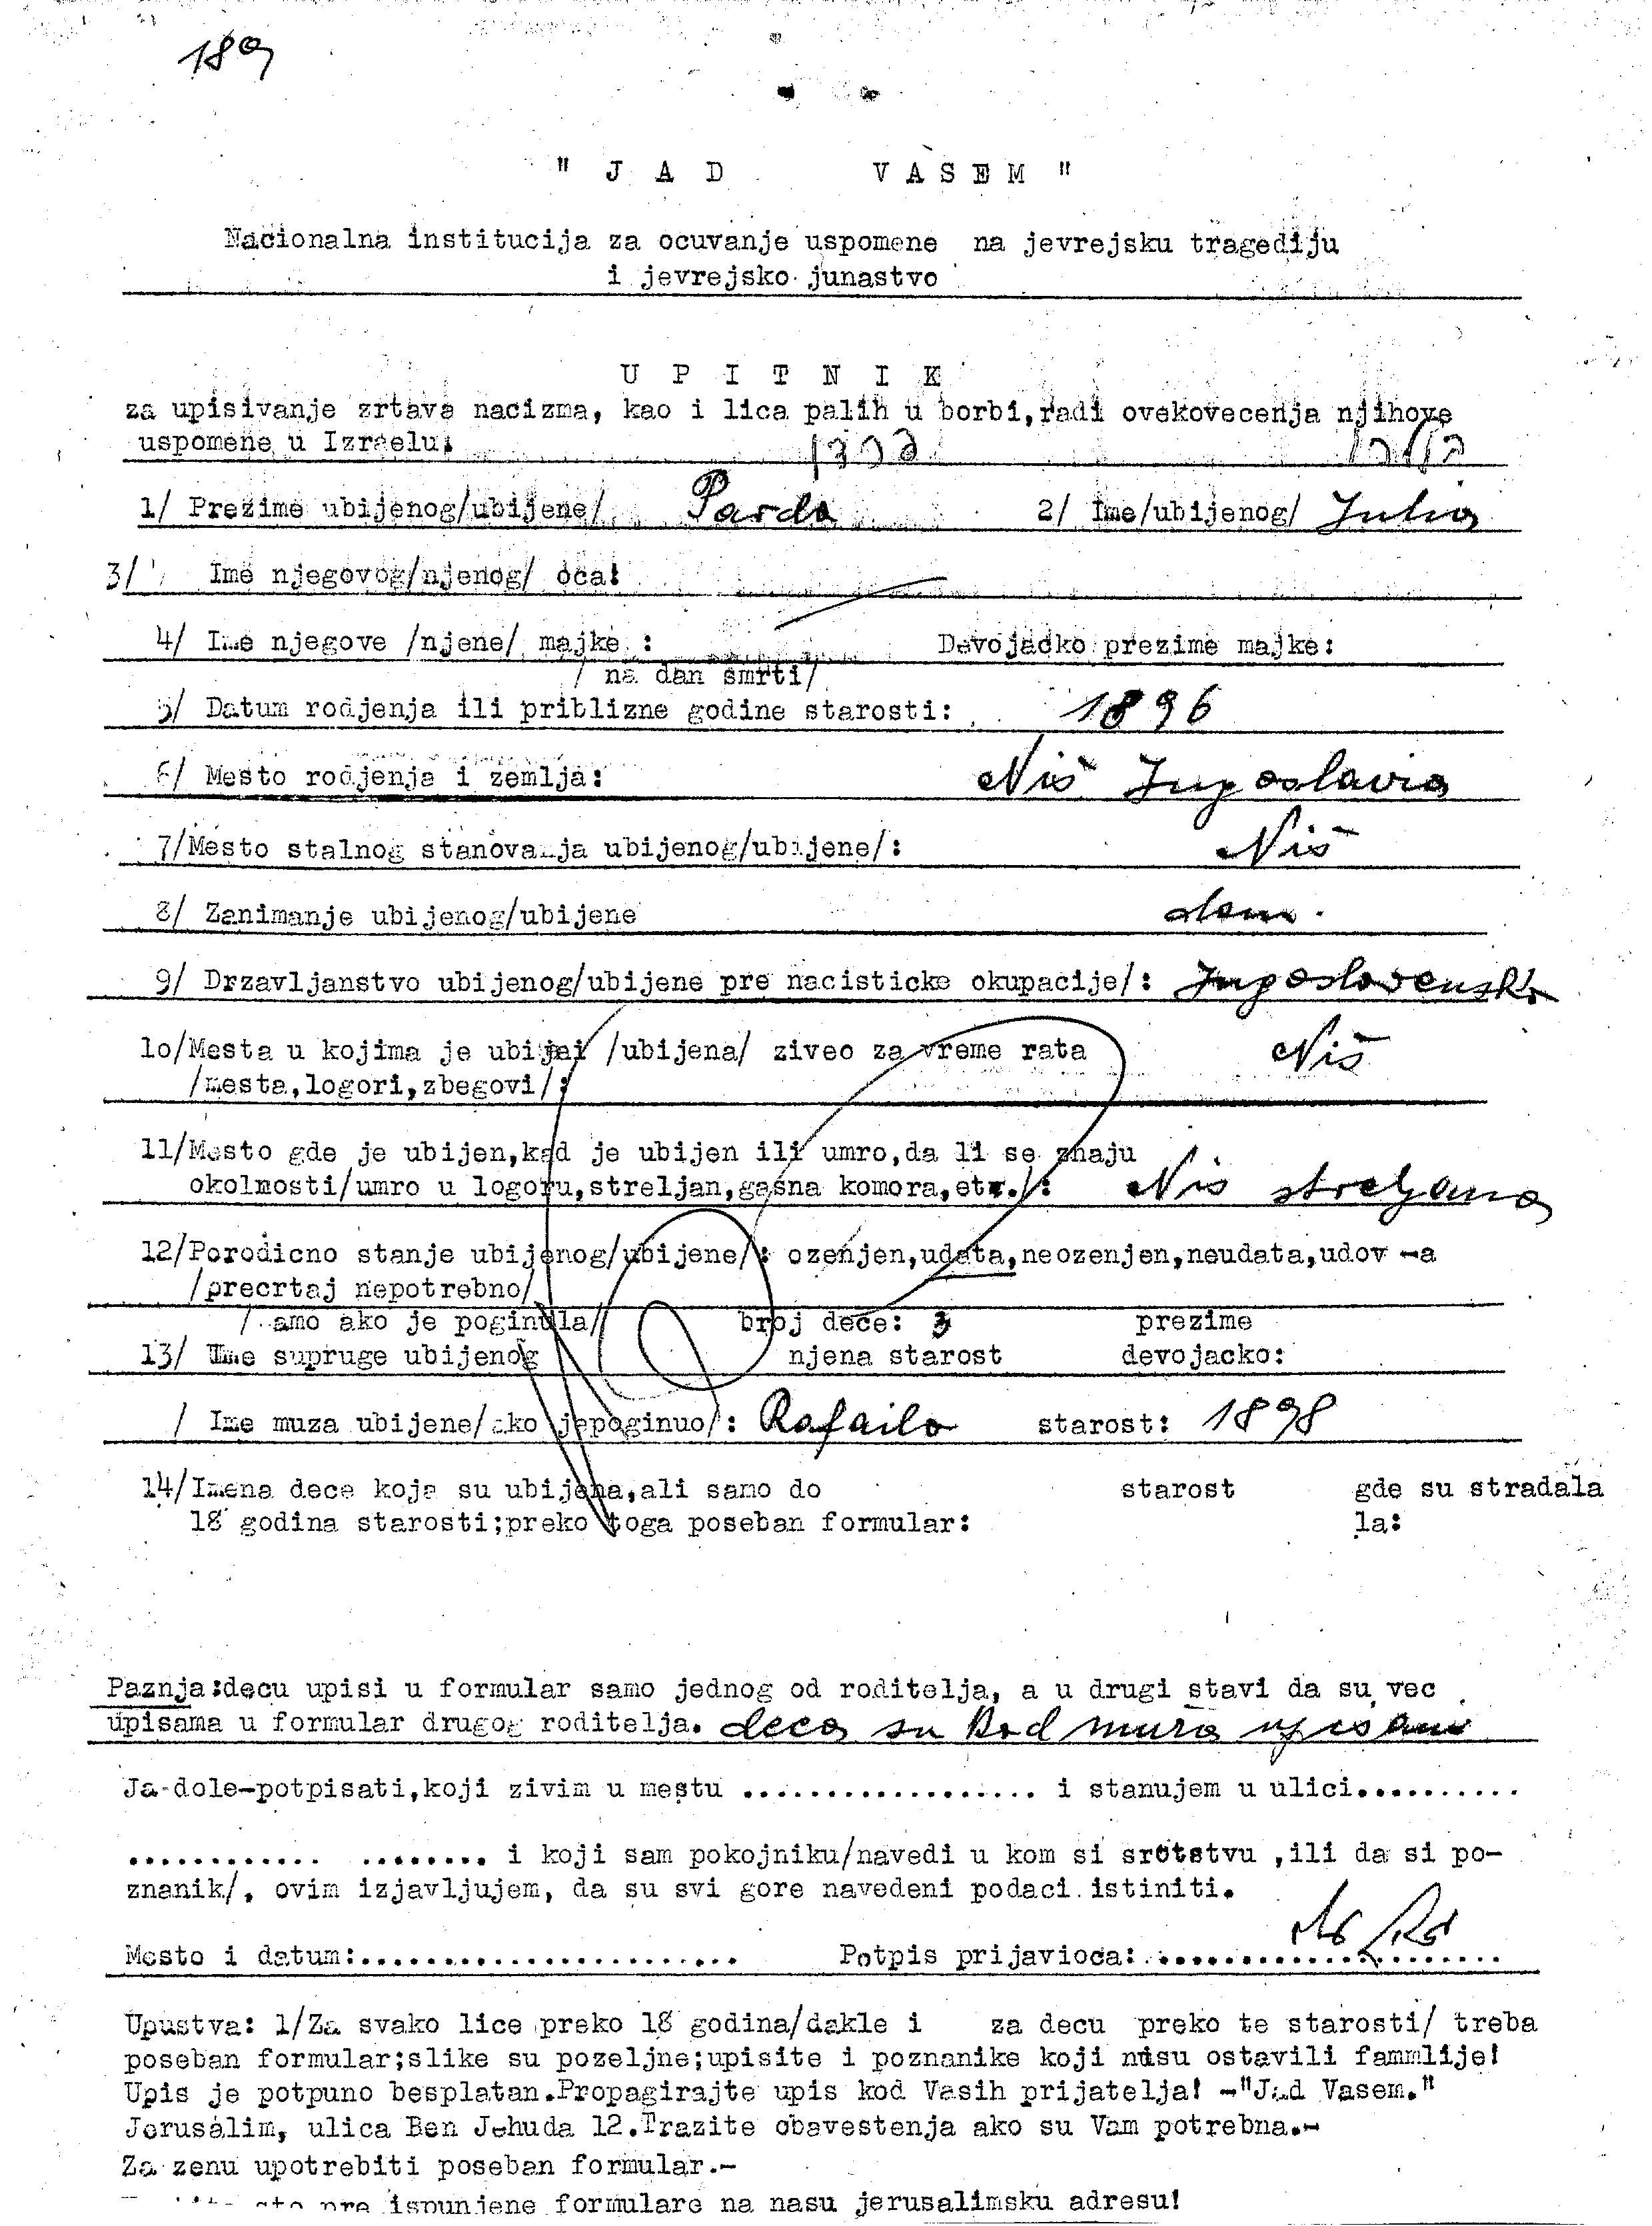 189
" J A D VASEM "
Nacionalna institucija za ocuvanje uspomene na jevrejsku tragediju
i jevrejsko junastvo
U P I T N I K
za upisivanje zrtava nacizma, kao i lica palih u borbi, radi ovekovecenja njihove
uspomene u Izraelu:
1/ Prezime ubijenog/ubijene/ Pardo 2/ Ime/ubijenog/ Julia
3/ Ime njegovog/njenog/ oca:
4/ Ime njegove /njene/ majke : Devojacko prezime majke:
/ na dan smrti/
5/ Datum rodjenja ili priblizne godine starosti: 1896
6/ Mesto rodjenja i zemlja: Niš Jugoslavia
7/Mesto stalnog stanovanja ubijenog/ubijene/: Niš
8/ Zanimanje ubijenog/ubijene dom.
9/ Drzavljanstvo ubijenog/ubijene pre nacisticke okupacije/: Jugoslovensko
lo/Mesta u kojima je ubijen /ubijena/ ziveo za vreme rata Niš
/mesta,logori,zbegovi/:
11/Mesto gde je ubijen,kad je ubijen ili umro,da li se znaju
okolnosti/umro u logoru,streljan,gasna komora,etc./: Nis streljana
12/Porodicno stanje ubijenog/ubijene/: ozenjen,udata,neozenjen,neudata,udov -a
/precrtaj nepotrebno/
/ amo ako je poginula/ broj dece: 3 prezime
13/ Ime supruge ubijenog njena starost devojacko:
/ Ime muza ubijene/ako jepoginuo/: Rafailo starost: 1898
14/Imena dece koja su ubijena,ali samo do starost gde su stradala
18 godina starosti;preko toga poseban formular: la:
Paznja:decu upisi u formular samo jednog od roditelja, a u drugi stavi da su vec
upisama u formular drugog roditelja. deca su kod muza upisana
Ja dole-potpisati,koji zivim u mestu .................. i stanujem u ulici..........
............ ........ i koji sam pokojniku/navedi u kom si srotstvu ,ili da si po-
znanik/, ovim izjavljujem, da su svi gore navedeni podaci istiniti.
Mesto i datum:....................... Potpis prijavioca: .....................
Upustva: 1/Za svako lice preko 18 godina/dakle i za decu preko te starosti/ treba
poseban formular;slike su pozeljne;upisite i poznanike koji nisu ostavili fammlije!
Upis je potpuno besplatan.Propagirajte upis kod Vasih prijatelja! -"Jad Vasem."
Jerusalim, ulica Ben Jehuda 12.Trazite obavestenja ako su Vam potrebna.-
Za zenu upotrebiti poseban formular.-
pre ispunjene formulare na nasu jerusalimsku adresu!